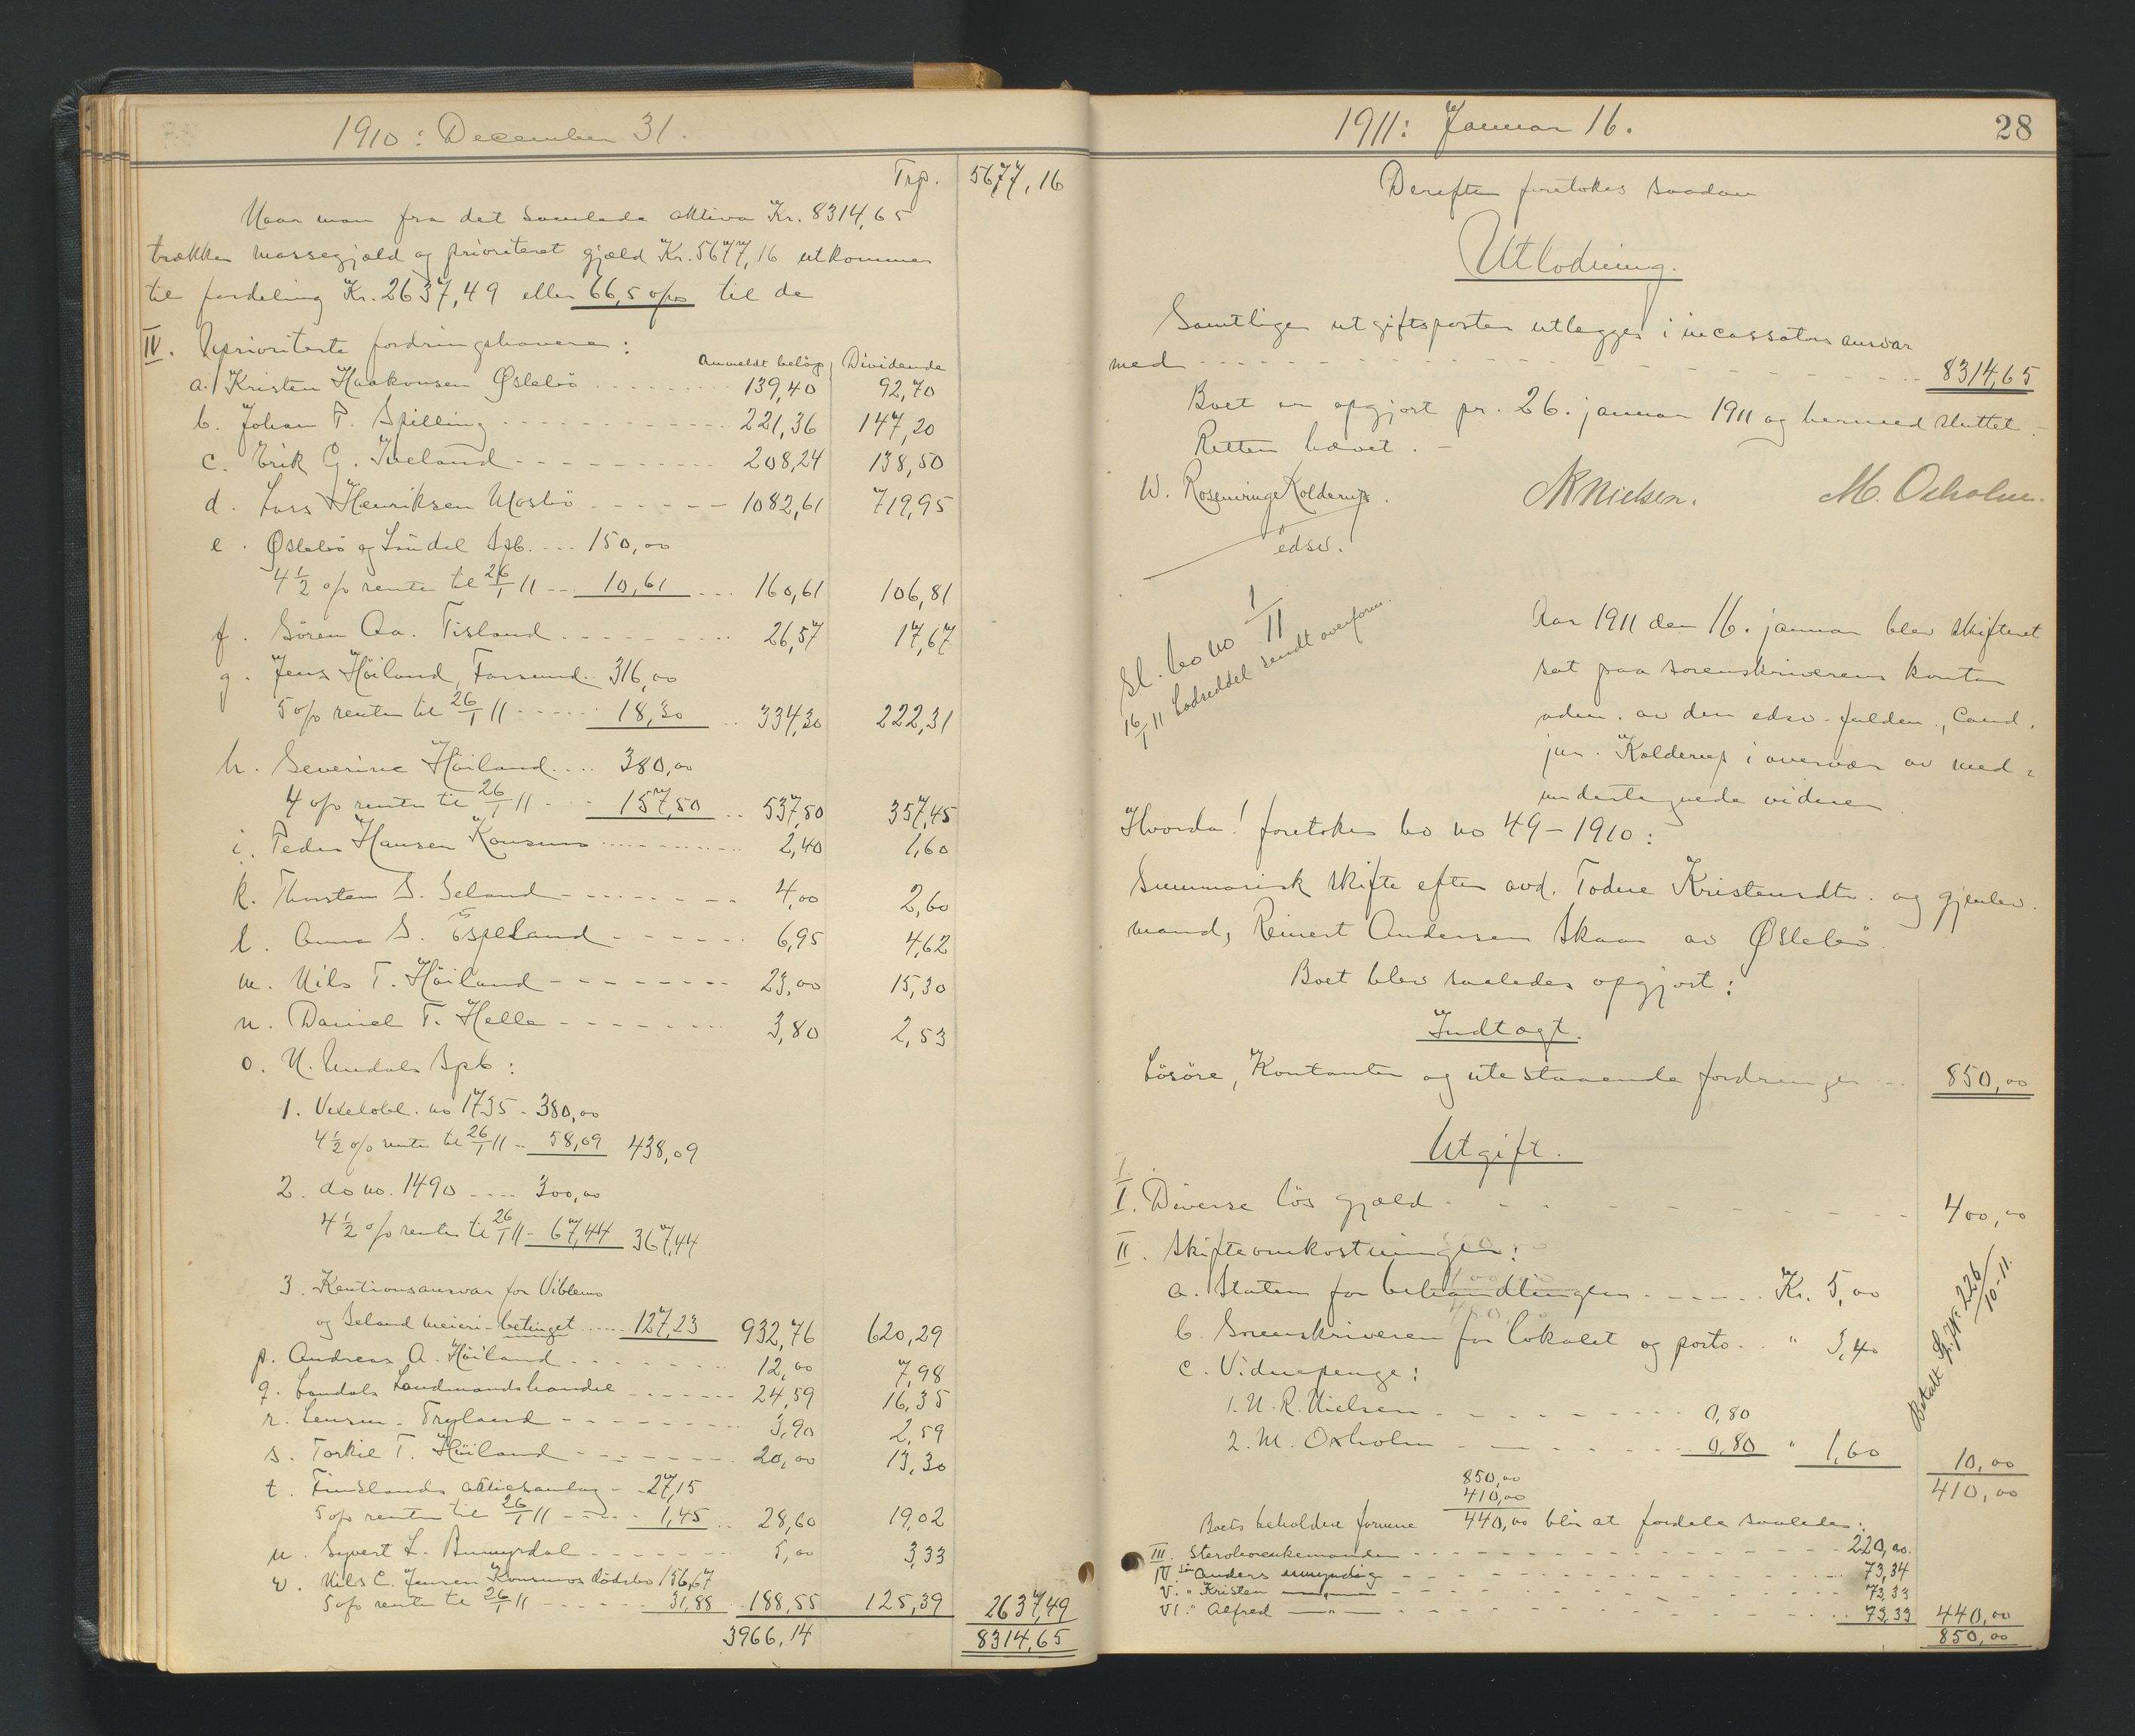 1910: December 31.
Trp. 5677,16
Naar man fra det samlede aktiva Kr. 8314,65
trækker massegjæld og prioritert gjæld Kr. 5677,16 utkommer
til fordeling Kr. 2637,49 eller 66,5 o/o til de
IV. Uprioriterte fordringshavere:
Anmeldt beløp Dividende
a. Kristen Haakonsen Øslebö 139,40 92,70
b. Johan T. Spilling 221,36 147,20
c. Erik G. Iveland 208,24 138,50
d. Lars Henriksen Mosbö 1082,61 719,95
e. Øslebö og Laudal Spb. 150,00
4½ o/o rente til 26/1 11 10,61 160,61 106,81
f. Sören Aa. Tisland 26,57 17,67
g. Jens Höiland, Farsund 316,00
5 o/o renter til 26/1 11 18,30 334,30 222,31
h. Severine Höiland 380,00
4 o/o renter til 26/1 11 157,50 537,50 357,45
i. Peder Hansen Konsmo 2,40 1,60
k. Thorsten S. Seland 4,00 2,60
l. Anna S. Espeland 6,95 4,62
m. Nils T. Höiland 23,00 15,30
n. Daniel T. Helle 3,80 2,53
o. N. Undals Spb:
1. Vexelobl. no 1735 - 380,00
4½ o/o rente til 26/1 11 58,09 438,09
2. do no. 1490 300,00
4½ o/o renter til 26/1 11 - 67,44 367,44
3. Kautionsansvar for Viblemo
og Seland meieri - betinget 127,23 932,76 620,29
p. Andreas A. Höiland 12,00 7,98
q. Laudals Landmandshandel 24,59 16,35
r. Lensm. Tryland 3,90 2,59
s. Torkil T. Höiland 20,00 13,30
t. Finslands aktiesamlag - 27,15
5 o/o renter til 26/1 11 1,45 28,60 19,02
u. Syvert L. 5,00 3,33
v. Nils C. Jensen Konsmos dödsbo 156,67
5 o/o rente til 26/1 11 31,88 188,55 125,39 2637,49
3966,14 8314,65
1911: Januar 16. 28
Derefter foretokes saadan
Utlodning.
Samtlige utgiftsposter utlegges i incassators ansvar
med 8314,65
Boet er opgjort pr. 26. januar 1911 og hermed sluttet.
Retten hævet. -
W. Rosenvinge Kolderup. NR Nielsen. M. Oxholm.
edsv.
Sl. bo no 1/11
16/1 11 Lodseddel sendt overform.
Aar 1911 den 16. januar blev skifteret
sat paa sorenskriverens kontor
adm. av den edsv. fuldm., Cand.
jur. Kolderup i overvær av med-
undertegnede vidner
Hvorda! foretokes bo no 49-1910:
Summarisk skifte efter avd. Todne Kristensdtr. og gjenlev.
mand, Reinert Andersen Skaar av Øslebö.
Boet blev saaledes opgjort:
Indtægt.
Lösöre, Kontanter og utestaaende fordringer 850,00
Utgift.
I. Diverse lös gjæld 400,00
II. Skifteomkostninger:
a. Staten for behandlingen Kr. 5,00
b. Sorenskriveren for lokalet og porto " 3,40
c. Vidnepenge:
1. N. R. Nielsen 0,80
2. M. Oxholm 0,80 " 1,60 10,00
Betalt Gj. N. 226/10-11.
410,00
850,00
410,00
Boets beholdne formue 440,00 blir at fordele saaledes:
III. Sterboenkemanden 220,00.
IV Sön Anders umyndig 73,34
V. " Kristen —"— 73,33
VI. " Alfred —"— 73,33 440,00
850,00